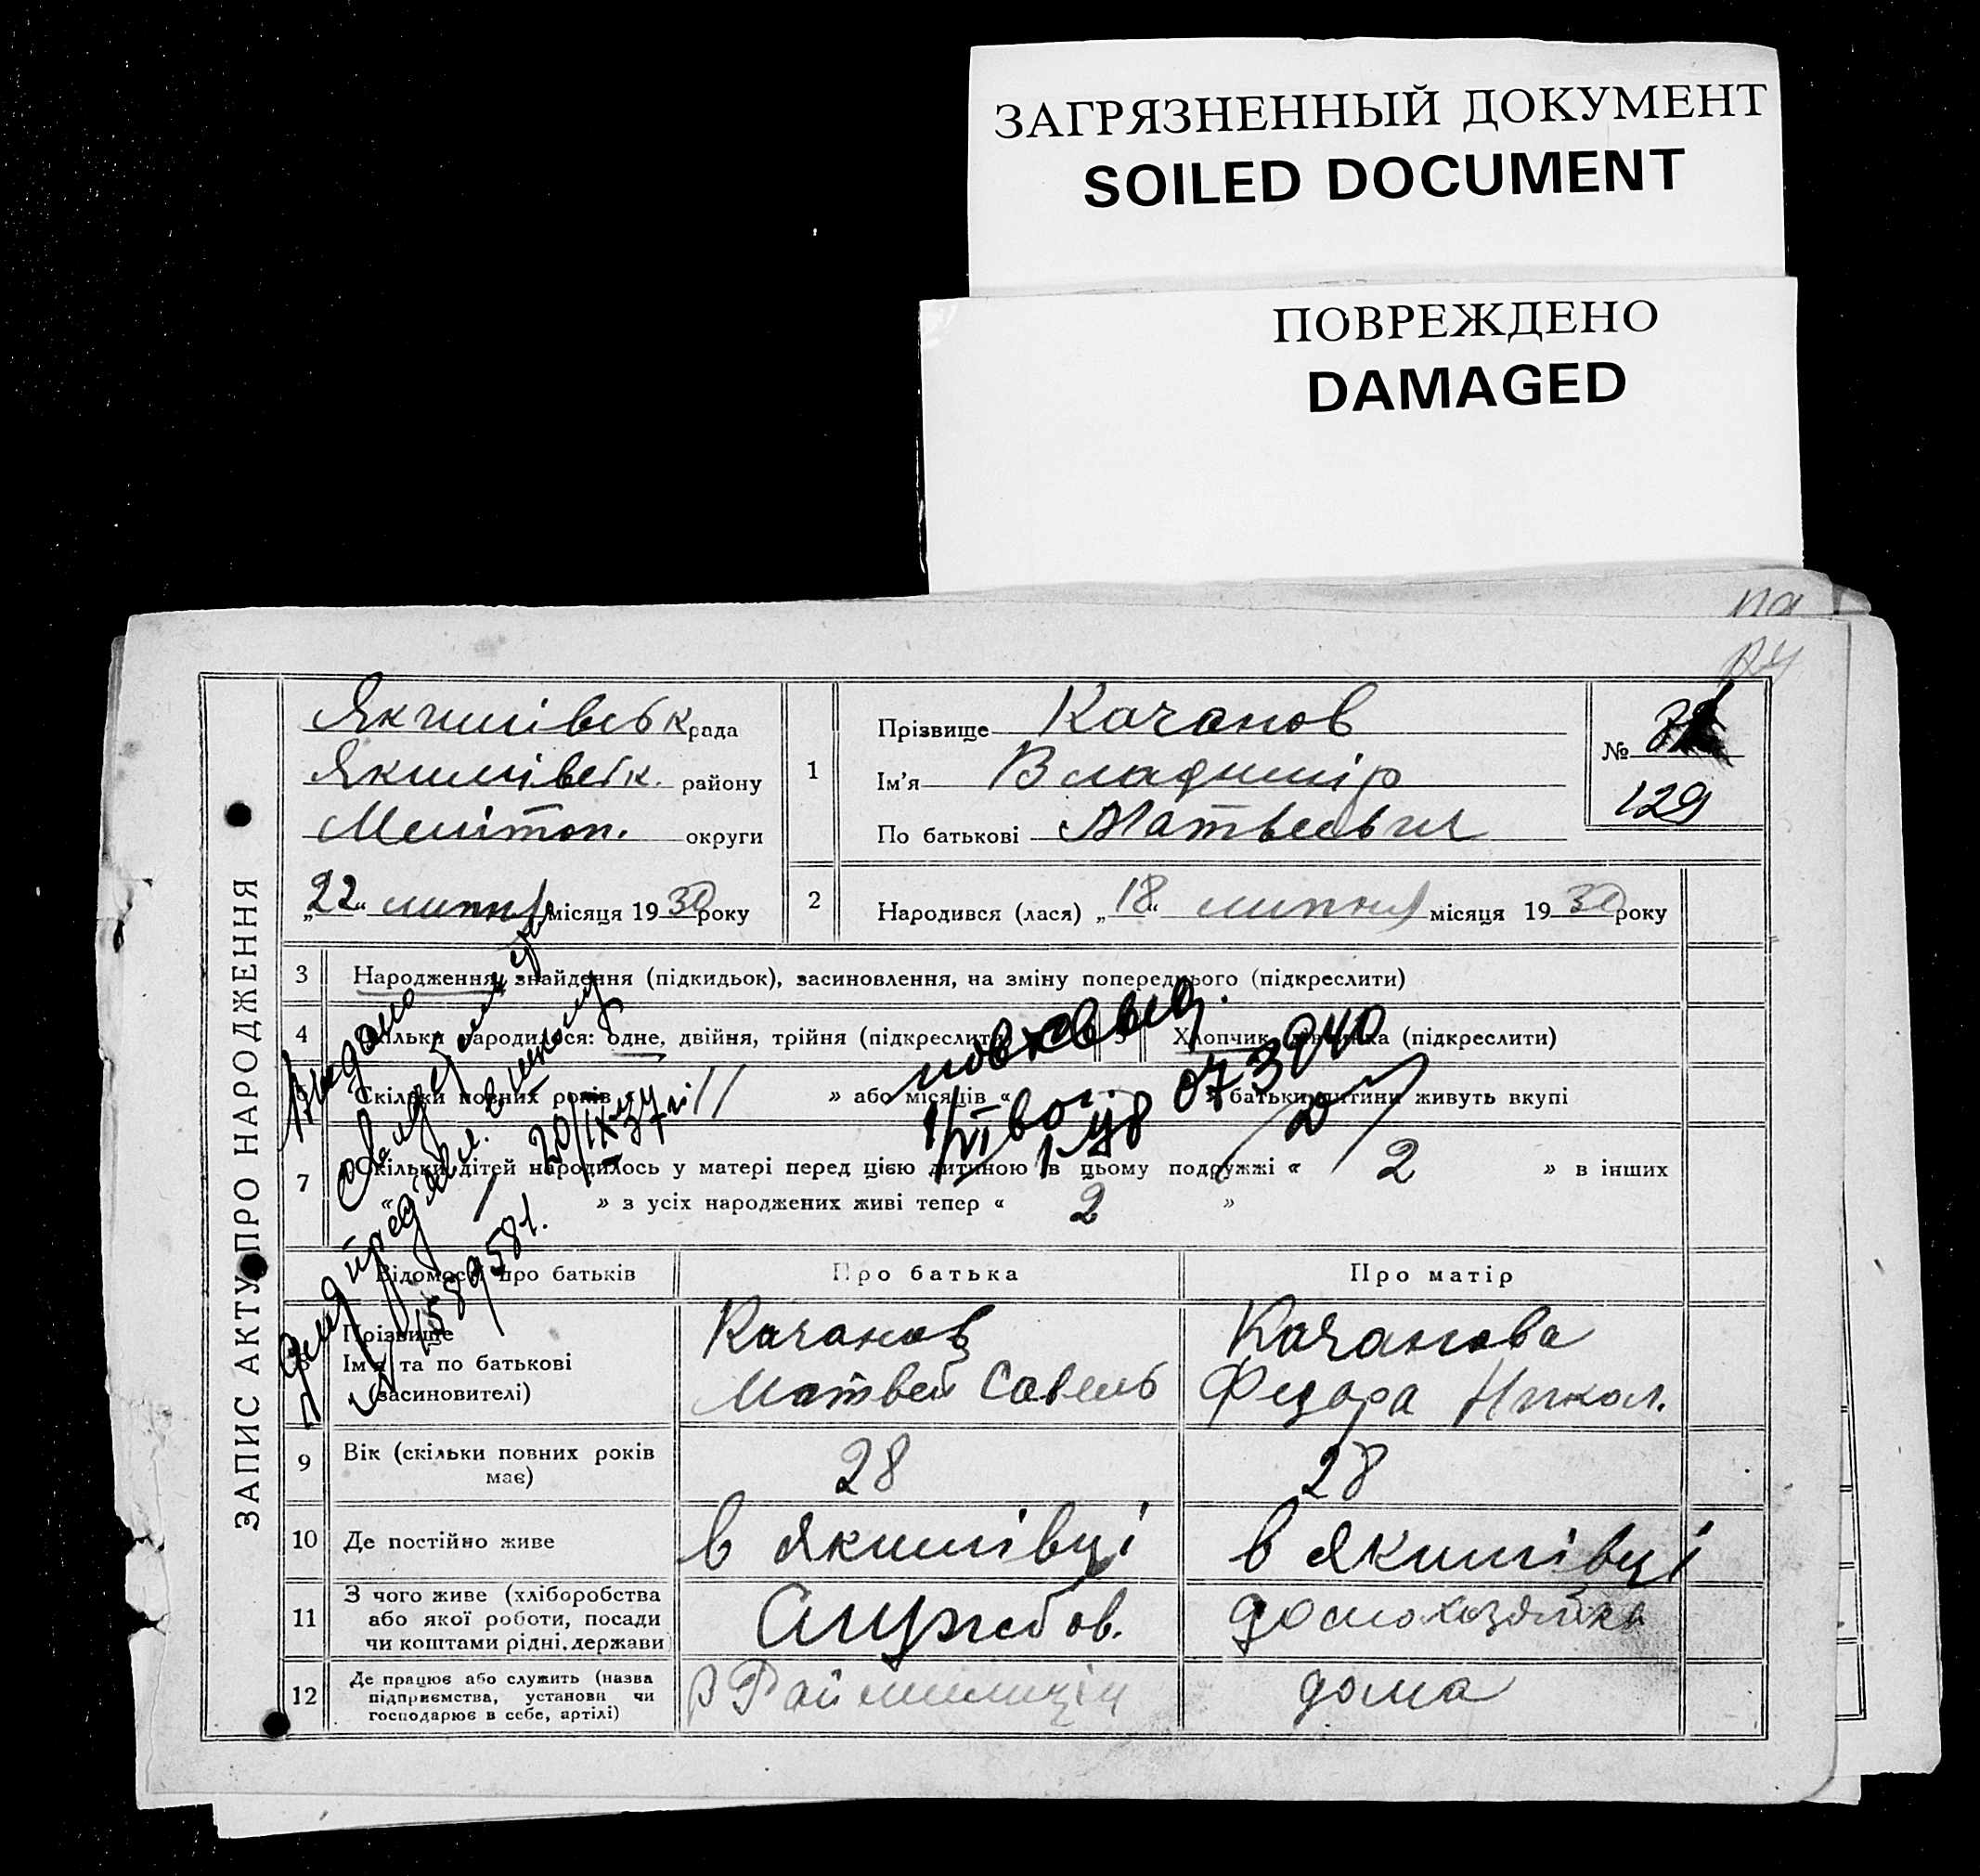 ЗАГРЯЗНЕННЫЙ ДОКУМЕНТ
SOILED DOCUMENT
ПОВРЕЖДЕНО
DAMAGED
ЗАПИС АКТУ ПРО НАРОДЖЕННЯ
Якимівськ рада
Якимівськ. району
Мелітоп. округи
„22“ липня місяця 1930 року
1
Прізвище Качанов
Ім’я Владимір
По батькові Матвеевич
№
129
2
Народився (лася) „18“ липня місяця 1930 року
3 Народження, знайдення (підкидьок), засиновлення, на зміну попереднього (підкреслити)
4 Скільки народилося: одне, двійня, трійня (підкреслити) 5 Хлопчик, дівчинка (підкреслити)
Скільки повних років » або місяців « » батьки дитини живуть вкупі
7 Скільки дітей народилось у матері перед цією дитиною в цьому подружжі « 2 » в інших
« » з усіх народжених живі тепер « 2 »
Видано
20/IX 37
Відомості про батьків Про батька Про матір
Прізвище
Ім’я та по батькові
(засиновителі)
Качанов
Матвей Савель
Качанова
Федора Никол.
9 Вік (скільки повних років має) 28 28
10 Де постійно живе в Якимівці в Якимівці
11 З чого живе (хліборобства або якої роботи, посади чи коштами рідні, держави) Службов. домохозяйка
12 Де працює або служить (назва підприємства, установи чи господарює в себе, артілі) в Раймиліціи дома